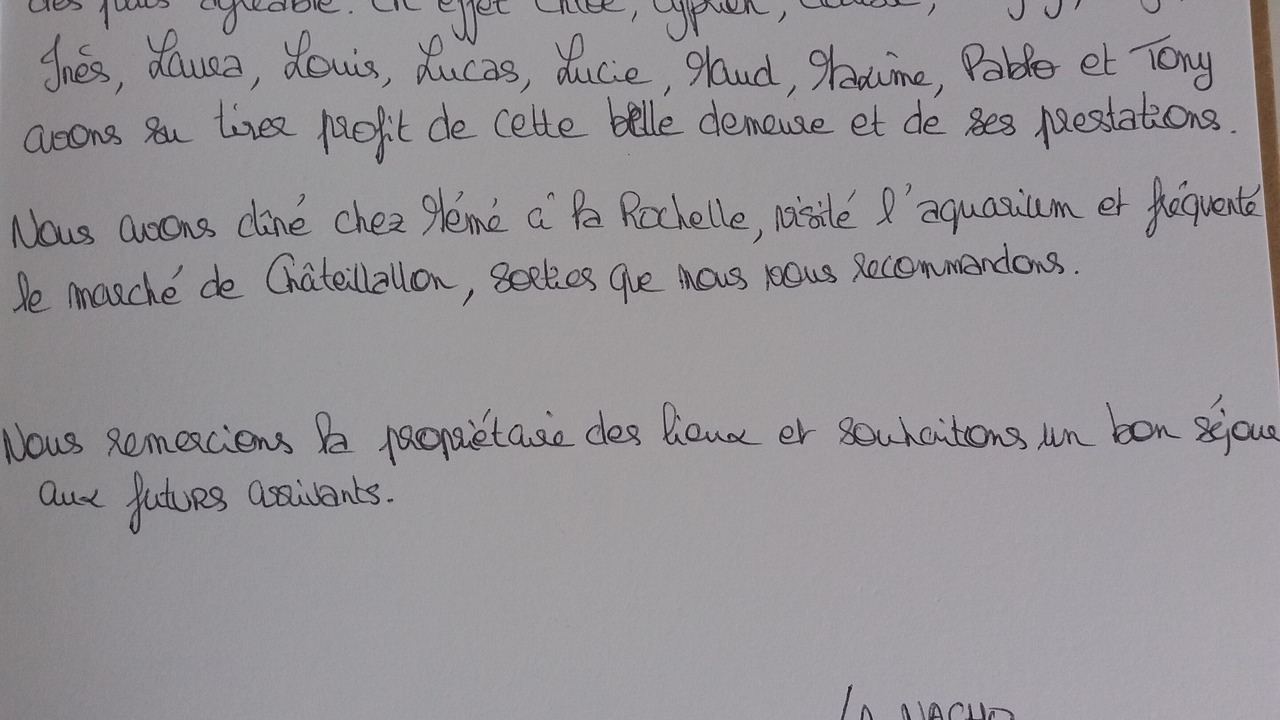 des plus agréable. En effet Chloé, Cyprien,
Inès, Laura, Louis, Lucas, Lucie, Maud, Maxime, Pablo et Tony
avons su tirer profit de cette belle demeure et de ses prestations.
Nous avons dîné chez Mémé à la Rochelle, visité l'aquarium et fréquenté
le marché de Châteillallon, sorties que nous vous recommandons.
Nous remercions la propriétaire des lieux et souhaitons un bon séjour
aux futurs arrivants.
La NACHO